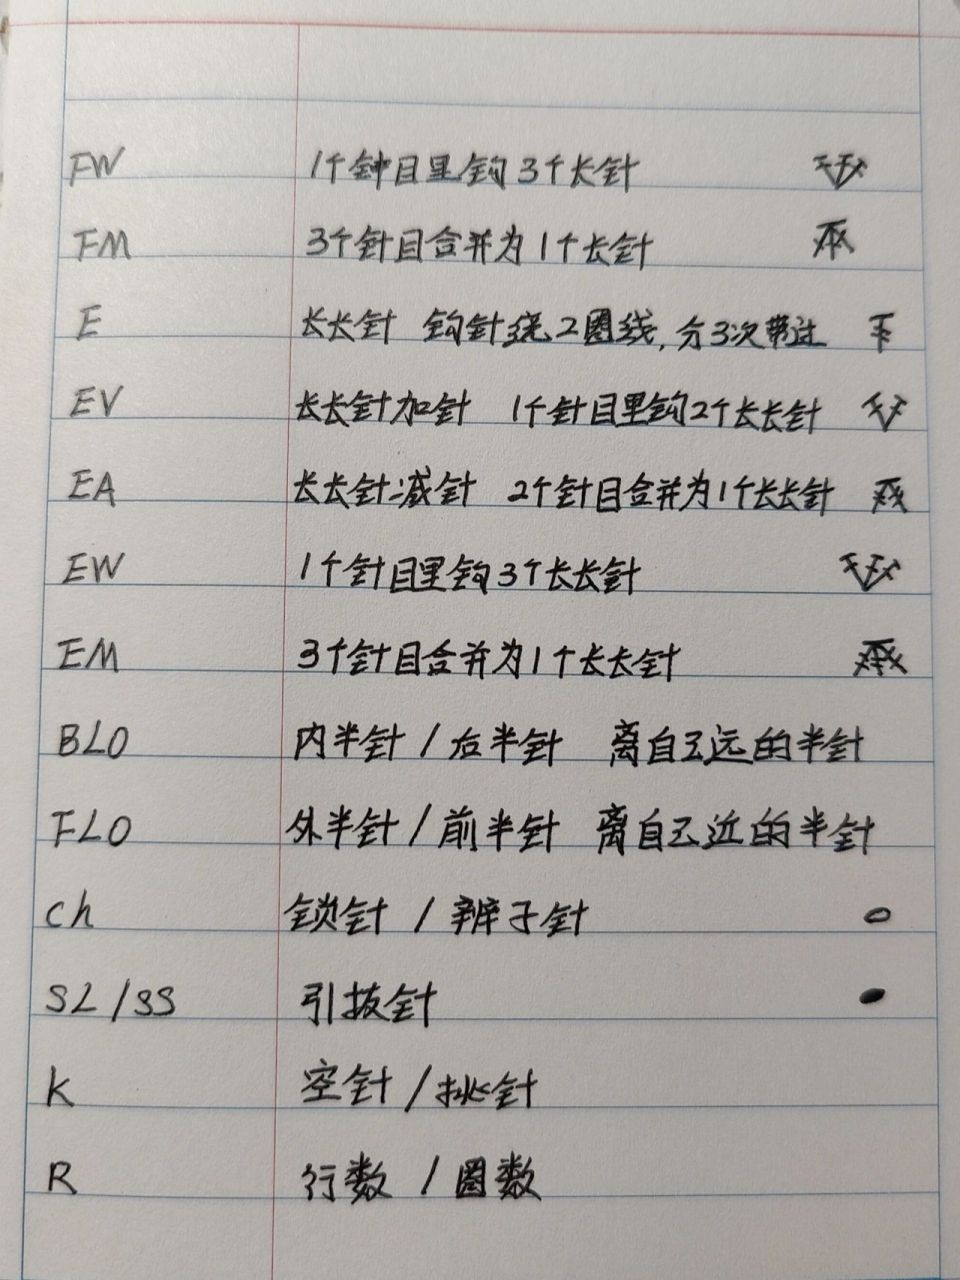 FW 1个针目里钩3个长针
FM 3个针目合并为1个长针
E 长长针 钩针绕2圈线,分3次带过
EV 长长针加针 1个针目里钩2个长长针
EA 长长针减针 2个针目合并为1个长长针
EW 1个针目里钩3个长长针
EM 3个针目合并为1个长长针
BLO 内半针/后半针 离自己远的半针
FLO 外半针/前半针 离自己近的半针
ch 锁针/辫子针
SL/SS 引拔针
K 空针/挑针
R 行数/圈数